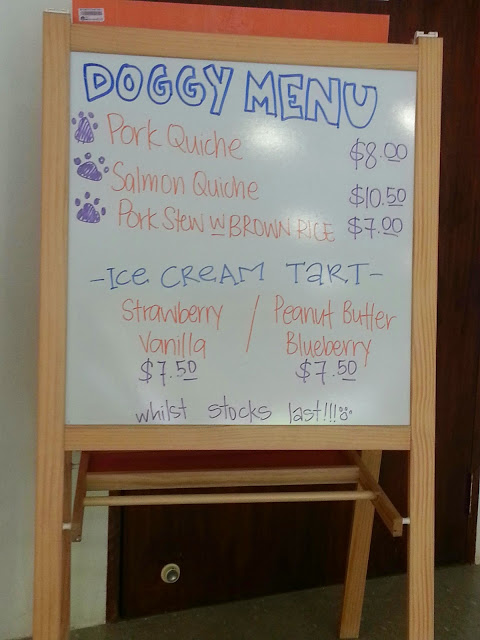 DOGGY MENU
Pork Quiche $8.00
Salmon Quiche $10.50
Pork Stew w BROWN RICE $7.00
- ICE CREAM TART -
Strawberry / Peanut Butter
Vanilla Blueberry
$7.50 $7.50
whilst stocks last!!!